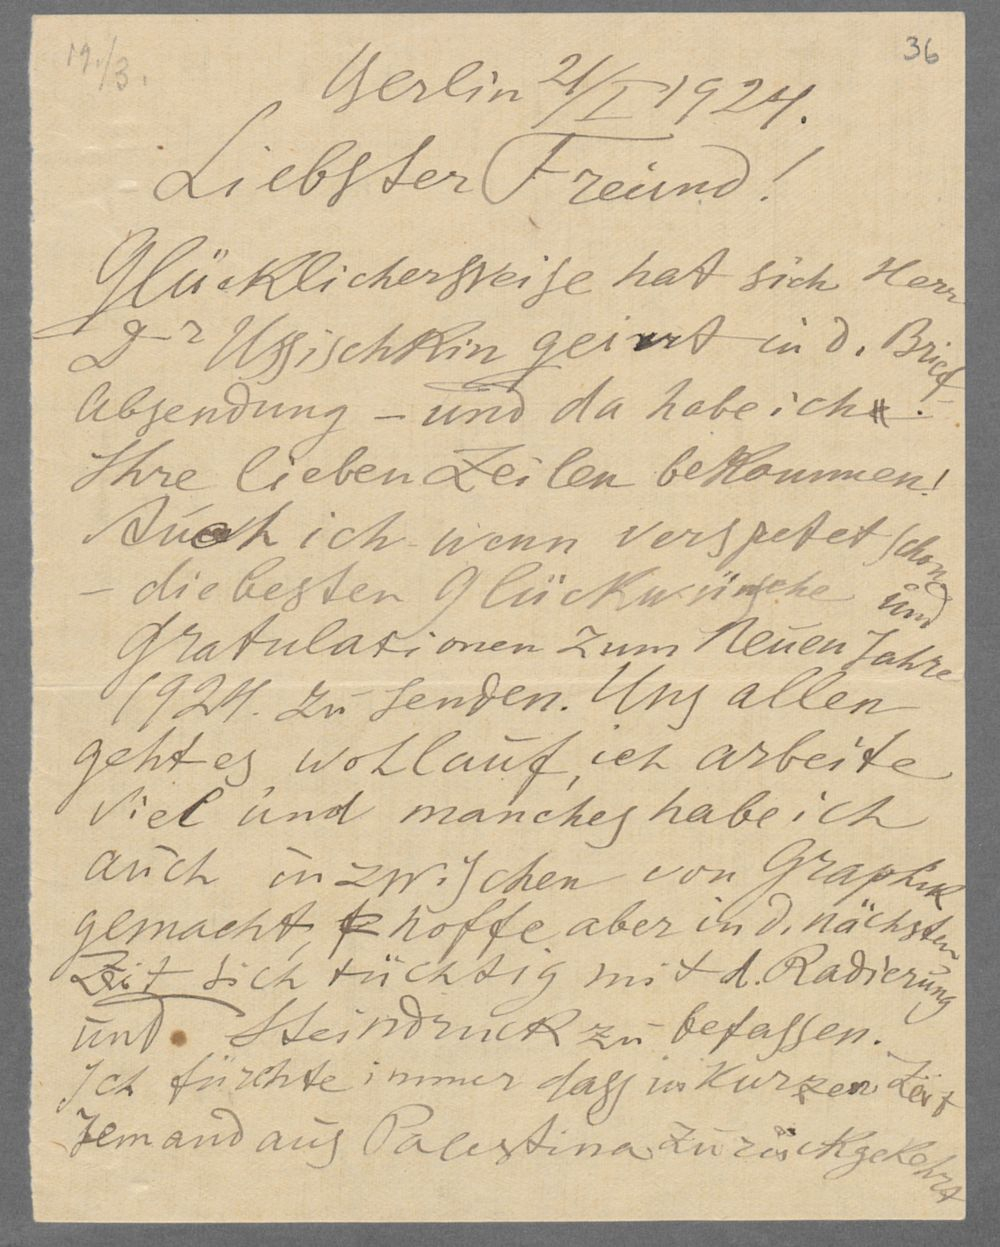 19./3.
36
Berlin 21/I 1924.
Liebster Freund!
Glücklicherweise hat sich Herr
Dr Ussischkin geirrt in d. Brief-
absendung – und da habe ich
Ihre lieben Zeilen bekommen!
Auch ich wenn verspetet schon
– die besten Glückwünsche und
gratulationen zum Neuen Jahre
1924. zu senden. Uns allen
geht es wohlauf, ich arbeite
viel und manches habe ich
auch inzwischen von Graphik
gemacht, hoffe aber in d. nächsten
Zeit sich tüchtig mit d. Radierung
und Steindruck zu befassen.
Ich fürchte immer dass in kurzen Zeit
Jemand aus Palestina zurückgekehrt